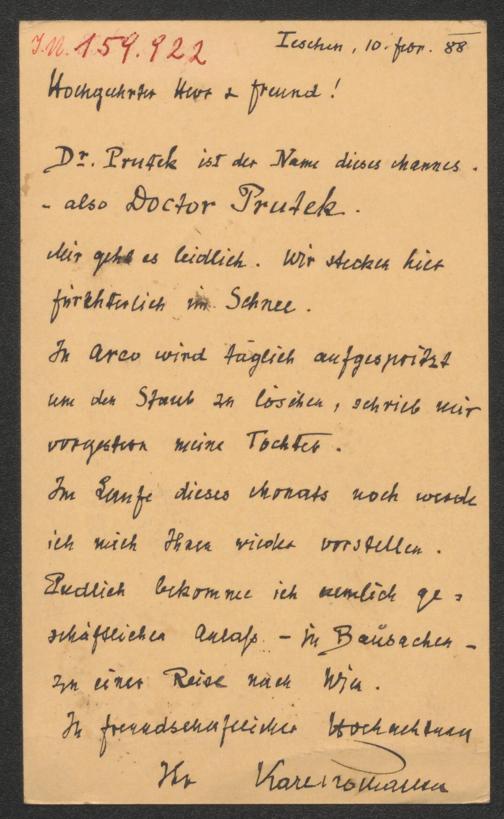 I.N. 159.922
Teschen, 10. febr. 88
Hochgeehrter Herr & freund!
Dr. Prutek ist der Name dieses Mannes.
- also Doctor Prutek.
Mir geht es leidlich. Wir stecken hier
fürchterlich im Schnee.
In Arco wird täglich aufgespritzt
um den Staub zu löschen, schrieb mir
vorgestern meine Tochter.
Im Laufe dieses Monats noch werde
ich mich Ihnen wieder vorstellen.
Endlich bekomme ich nemlich ge=
schäftlichen Anlaß - in Baüsachen -
zu einer Reise nach Wien.
In freundschaftlicher Hochachtung
Ihr Karl